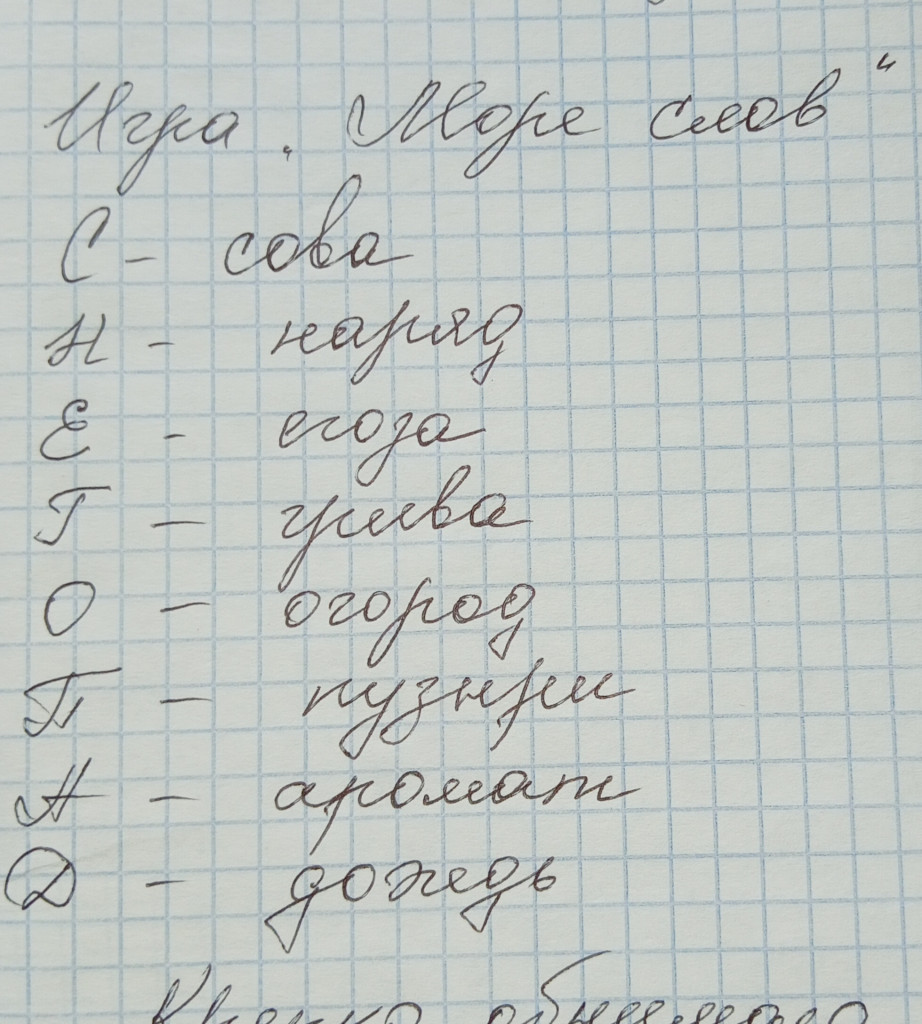 Игра „Море слов“
С - сова
Н - наряд
Е - егоза
Г - грива
О - огород
П - пузыри
А - аромат
Д - дождь